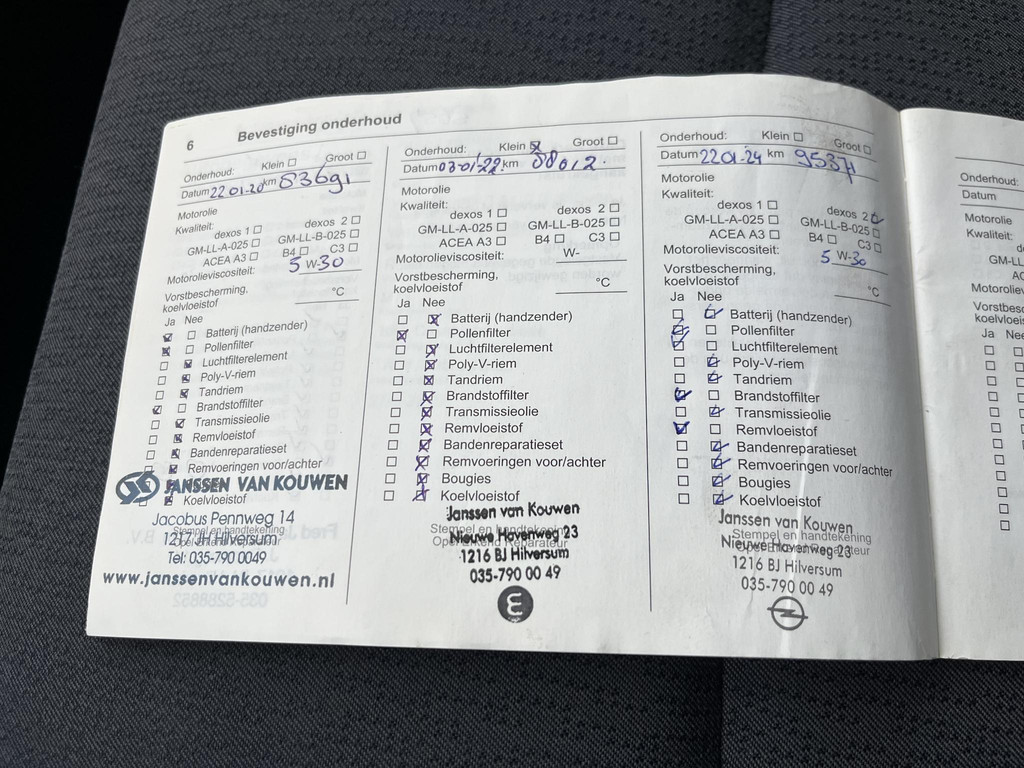 6
Bevestiging onderhoud
Onderhoud: Klein ☐ Groot ☐
Datum 22 01-20 km 83691
Motorolie
Kwaliteit:
dexos 1 ☐ dexos 2 ☐
GM-LL-A-025 ☐ GM-LL-B-025 ☐
ACEA A3 ☐ B4 ☐ C3 ☐
Motorolieviscositeit: 5 W-30
Vorstbescherming,
koelvloeistof °C
Ja Nee
☑ ☐ Batterij (handzender)
☒ ☐ Pollenfilter
☐ ☒ Luchtfilterelement
☐ ☒ Poly-V-riem
☐ ☒ Tandriem
☑ ☐ Brandstoffilter
☐ ☒ Transmissieolie
☐ ☒ Remvloeistof
☐ ☒ Bandenreparatieset
☐ ☒ Remvoeringen voor/achter
JANSSEN VAN KOUWEN
Koelvloeistof
Jacobus Pennweg 14
Stempel en handtekening
1217 JH Hilversum
Tel: 035-790 0049
www.janssenvankouwen.nl
Onderhoud: Klein ☒ Groot ☐
Datum 03-01-22 km 88012
Motorolie
Kwaliteit:
dexos 1 ☐ dexos 2 ☐
GM-LL-A-025 ☐ GM-LL-B-025 ☐
ACEA A3 ☐ B4 ☐ C3 ☐
Motorolieviscositeit: W-
Vorstbescherming,
koelvloeistof °C
Ja Nee
☐ ☒ Batterij (handzender)
☒ ☐ Pollenfilter
☐ ☒ Luchtfilterelement
☐ ☒ Poly-V-riem
☐ ☒ Tandriem
☐ ☒ Brandstoffilter
☐ ☒ Transmissieolie
☐ ☒ Remvloeistof
☐ ☒ Bandenreparatieset
☐ ☒ Remvoeringen voor/achter
☐ ☒ Bougies
☐ ☒ Koelvloeistof
Janssen van Kouwen
Stempel en handtekening
Nieuwe Havenweg 23
Opel Erkend Reparateur
1216 BJ Hilversum
035-790 00 49
Onderhoud: Klein ☐ Groot ☐
Datum 22 01-24 km 95371
Motorolie
Kwaliteit:
dexos 1 ☐ dexos 2 ☑
GM-LL-A-025 ☐ GM-LL-B-025 ☐
ACEA A3 ☐ B4 ☐ C3 ☐
Motorolieviscositeit: 5 W-30
Vorstbescherming,
koelvloeistof °C
Ja Nee
☐ ☑ Batterij (handzender)
☑ ☐ Pollenfilter
☑ ☐ Luchtfilterelement
☐ ☑ Poly-V-riem
☐ ☑ Tandriem
☑ ☐ Brandstoffilter
☐ ☑ Transmissieolie
☑ ☐ Remvloeistof
☐ ☑ Bandenreparatieset
☐ ☑ Remvoeringen voor/achter
☐ ☑ Bougies
☐ ☑ Koelvloeistof
Janssen van Kouwen
Stempel en handtekening
Nieuwe Havenweg 23
1216 BJ Hilversum
035-790 00 49
Onderhoud:
Datum
Motorolie
Kwaliteit:
GM-LL
Ja